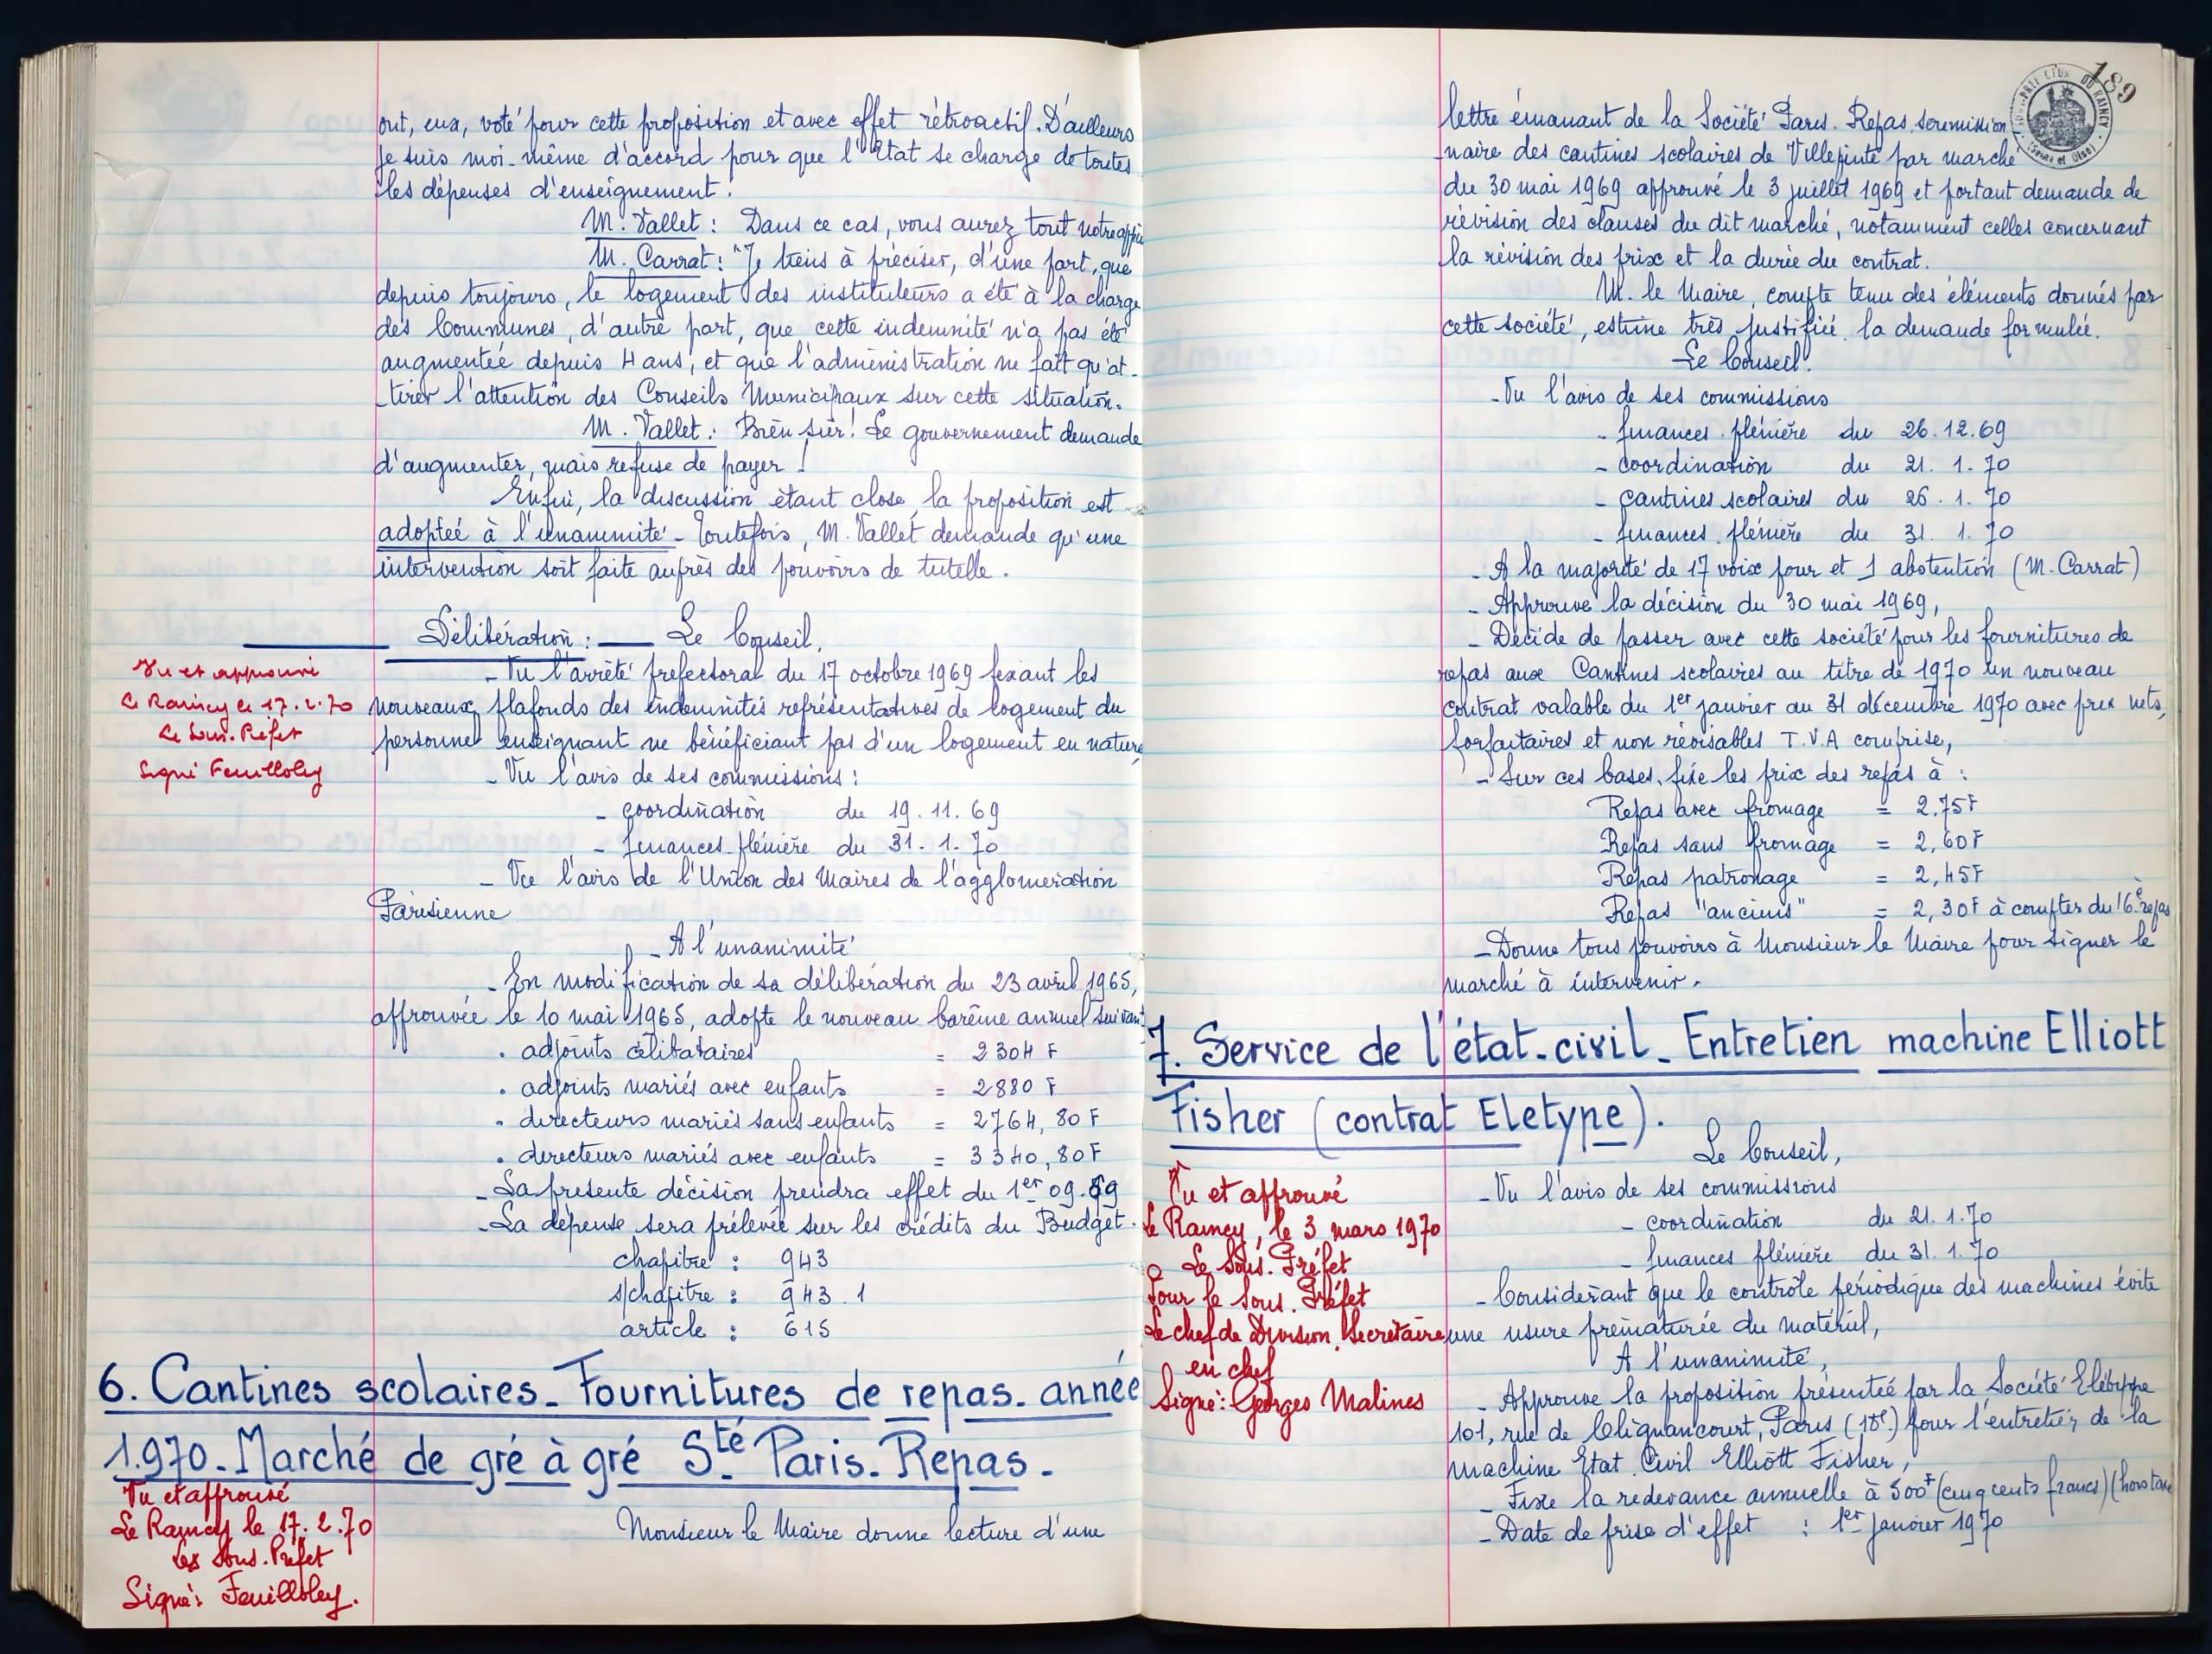 ont, eux, voté pour cette proposition et avec effet rétroactif. D'ailleurs
je suis moi-même d'accord pour que l'Etat se charge de toutes
les dépenses d'enseignement.
M. Vallet : Dans ce cas, vous aurez tout notre appui
M. Carrat : "Je tiens à préciser, d'une part, que
depuis toujours, le logement des instituteurs a été à la charge
des Communes, d'autre part, que cette indemnité n'a pas été
augmentée depuis 4 ans, et que l'administration ne fait qu'at-
-tirer l'attention des Conseils Municipaux sur cette situation.
M. Vallet : Bien sûr ! Le gouvernement demande
d'augmenter, mais refuse de payer !
Enfin, la discussion étant close, la proposition est
adoptée à l'unanimité - Toutefois, M. Vallet demande qu'une
intervention soit faite auprès des pouvoirs de tutelle.
Délibération : — Le Conseil,
- Vu l'arrêté prefectoral du 17 octobre 1969 fixant les
nouveaux plafonds des indemnités représentatives de logement du
personnel enseignant ne bénéficiant pas d'un logement en nature,
- Vu l'avis de ses commissions :
- coordination du 19.11.69
- finances-plénière du 31.1.70
- Vu l'avis de l'Union des Maires de l'agglomération
Parisienne
- A l'unanimité
- En modification de sa délibération du 23 avril 1965,
approuvée le 10 mai 1965, adopte le nouveau barême annuel suivant
. adjoints célibataires = 2304 F
. adjoints mariés avec enfants = 2880 F
. directeurs mariés sans enfants = 2764,80 F
. directeurs mariés avec enfants = 3340,80 F
- La présente décision prendra effet du 1er 09.69
- La dépense sera prélevée sur les crédits du Budget.
chapitre : 943
s/chapitre : 943.1
article : 615
Vu et approuvé
Le Raincy le 17.2.70
Le Sous-Préfet
Signé Feuilloley
6. Cantines scolaires - Fournitures de repas - année
1.970 - Marché de gré à gré Sté Paris-Repas -
Vu et approuvé
Le Raincy le 17.2.70
Le Sous-Préfet
Signé : Feuilloley.
Monsieur le Maire donne lecture d'une
189
SOUS-PRÉFECTURE DU RAINCY
(Seine et Oise)
lettre émanant de la Société Paris-Repas, soremission
-naire des cantines scolaires de Villepinte par marché
du 30 mai 1969 approuvé le 3 juillet 1969 et portant demande de
révision des clauses du dit marché, notamment celles concernant
la révision des prix et la durée du contrat.
M. le Maire, compte tenu des éléments donnés par
cette société, estime très justifiée la demande formulée.
Le Conseil.
- Vu l'avis de ses commissions
- finances plénière du 26.12.69
- coordination du 21.1.70
- cantines scolaires du 26.1.70
- finances plénière du 31.1.70
- A la majorité de 17 voix pour et 1 abstention (M. Carrat)
- Approuve la décision du 30 mai 1969,
- Décide de passer avec cette société pour les fournitures de
repas aux Cantines scolaires au titre de 1970 un nouveau
contrat valable du 1er janvier au 31 décembre 1970 avec prix nets,
forfaitaires et non révisables T.V.A comprise,
- Sur ces bases, fixe les prix des repas à :
Repas avec fromage = 2.75F
Repas sans fromage = 2,60F
Repas patronage = 2,45F
Repas "anciens" = 2,30F à compter du 16è repas
- Donne tous pouvoirs à Monsieur le Maire pour signer le
marché à intervenir.
7. Service de l'état-civil - Entretien machine Elliott
Fisher (contrat Eletype).
Le Conseil,
Vu et approuvé
Le Raincy, le 3 mars 1970
Le Sous-Préfet
Pour le Sous-Préfet
Le chef de Division, Secrétaire
en chef
Signé : Georges Malines
- Vu l'avis de ses commissions
- coordination du 21.1.70
- finances plénière du 31.1.70
- Considérant que le contrôle périodique des machines évite
une usure prématurée du matériel,
A l'unanimité,
- Approuve la proposition présentée par la Société Elétype
101, rue de Clignancourt, Paris (18e) pour l'entretien de la
machine Etat Civil Elliott Fisher,
- Fixe la redevance annuelle à 500F (cinq cents francs) (hors taxe
- Date de prise d'effet : 1er janvier 1970